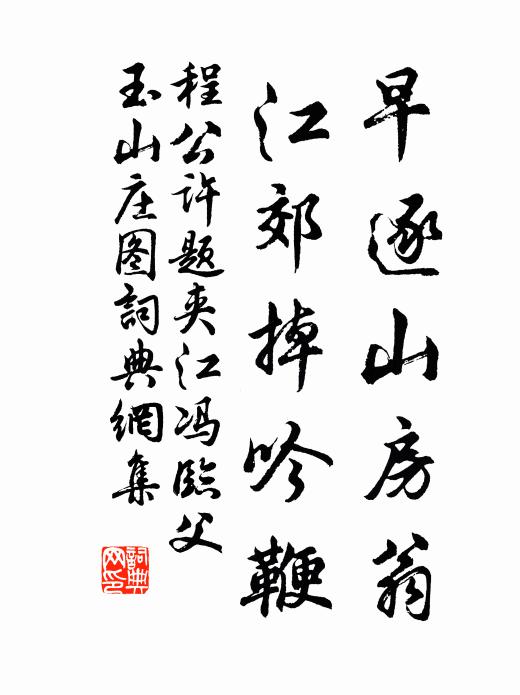 早逐山房翁
江郊掉吟鞭
程公许题夹江冯临父
玉山庄图詞典網集
詞典网印